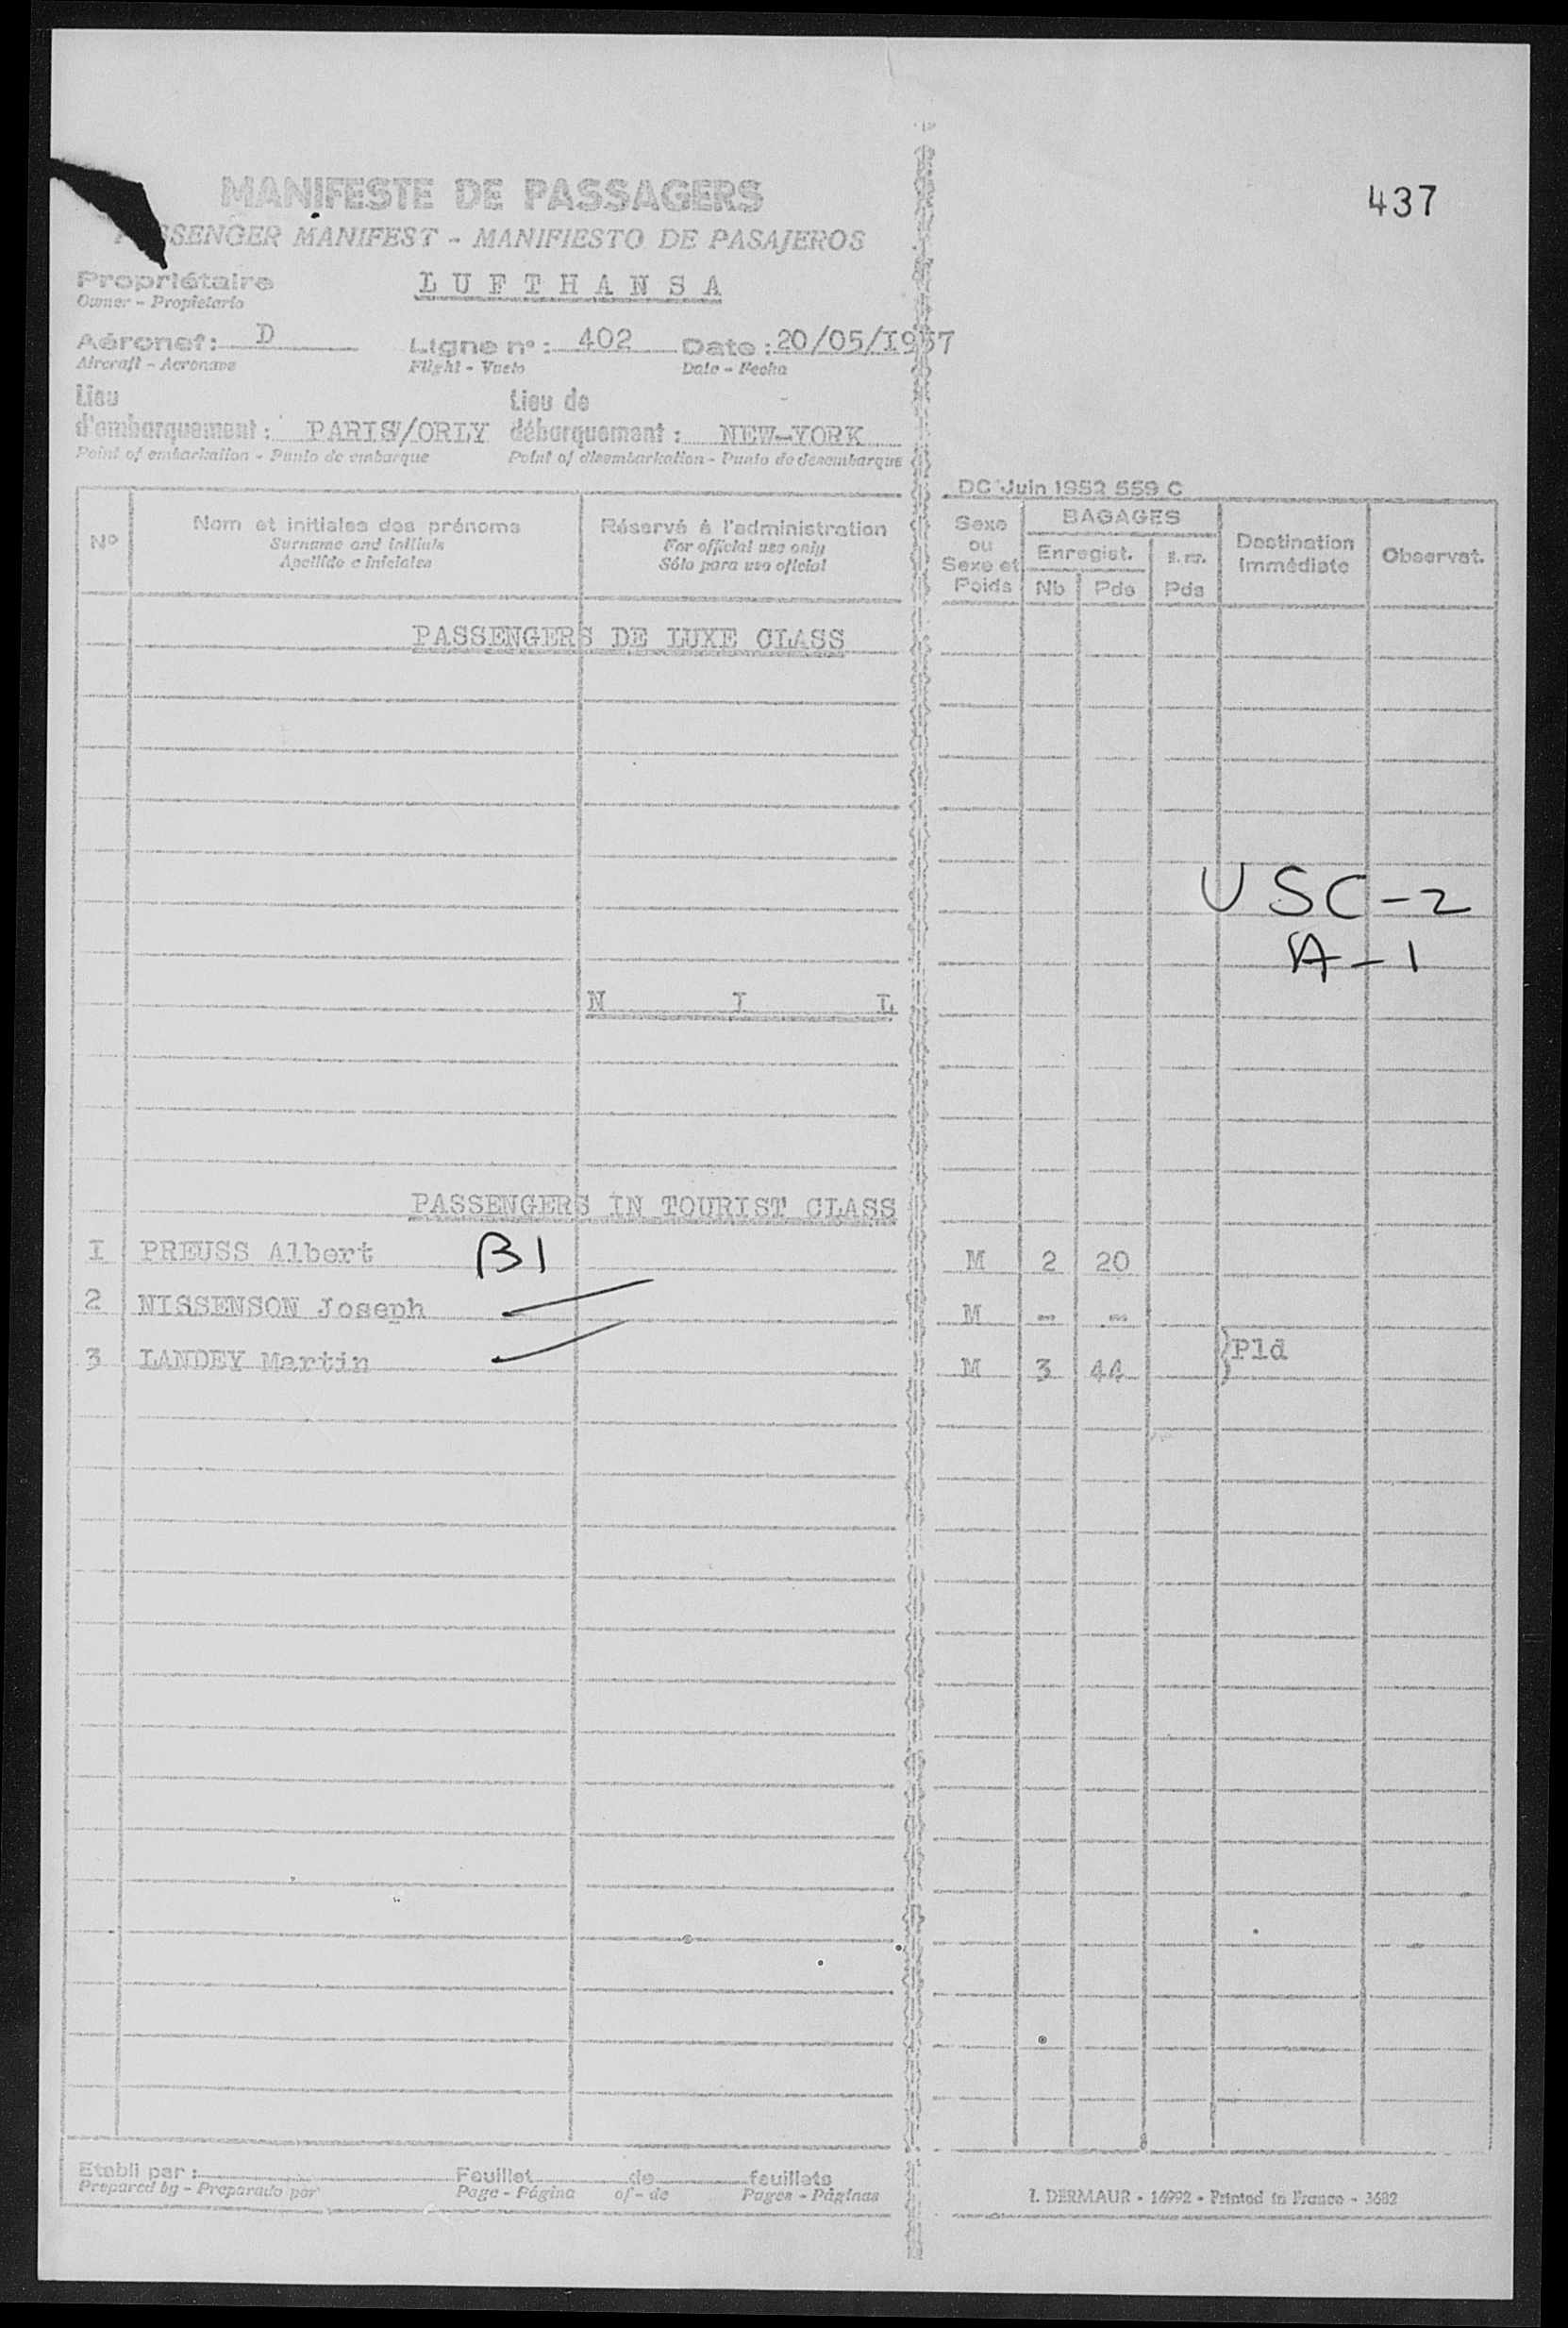 437
MANIFESTE DE PASSAGERS
SSENGER MANIFEST - MANIFIESTO DE PASAJEROS
Propriétaire
Owner - Propietario
L U F T H A N S A
Aéronef: D Ligne n°: 402 Date: 20/05/I957
Aircraft - Aeronave Flight - Vuelo Date - Fecha
Lieu Lieu de
d'embarquement: PARIS/ORLY débarquement: NEW-YORK
Point of embarkation - Punto de embarque Point of disembarkation - Punto de desembarque
DC Juin 1952 559 C
N° Nom et initiales des prénoms Réservé à l'administration Sexe ou Sexe et Poids BAGAGES Destination immédiate Observat.
Surname and initials For official use only Enregist.
Apellido e iniciales Sólo para uso oficial Nb Pds Pds
PASSENGERS DE LUXE CLASS
USC-2
A-1
N I L
PASSENGERS IN TOURIST CLASS
I PREUSS Albert B1 M 2 20
2 NISSENSON Joseph M - -
3 LANDEY Martin M 3 44 }Pld
Etabli par: Feuillet de feuillets
Prepared by - Preparado por Page - Página of - de Pages - Páginas
I. DERMAUR - 16992 - Printed in France - 3682